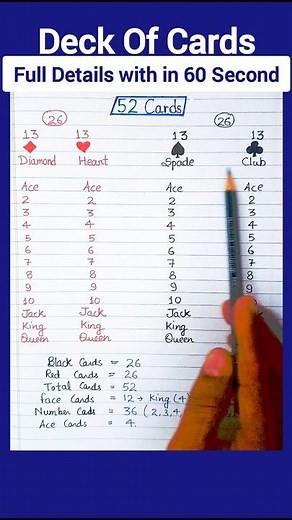 Deck Of Cards
Full Details with in 60 Second
52 Cards
26 26
13 13 13 13
Diamond Heart Spade Club
Ace Ace Ace Ace
2 2 2 2
3 3 3 3
4 4 4 4
5 5 5 5
6 6 6 6
7 7 7 7
8 8 8 8
9 9 9 9
10 10 10 10
Jack Jack Jack Jack
King King King
Queen Queen Queen
Black Cards = 26
Red Cards = 26
Total Cards = 52
face Cards = 12 → King (4)
Number Cads = 36 (2,3,4,
Ace Cards = 4.